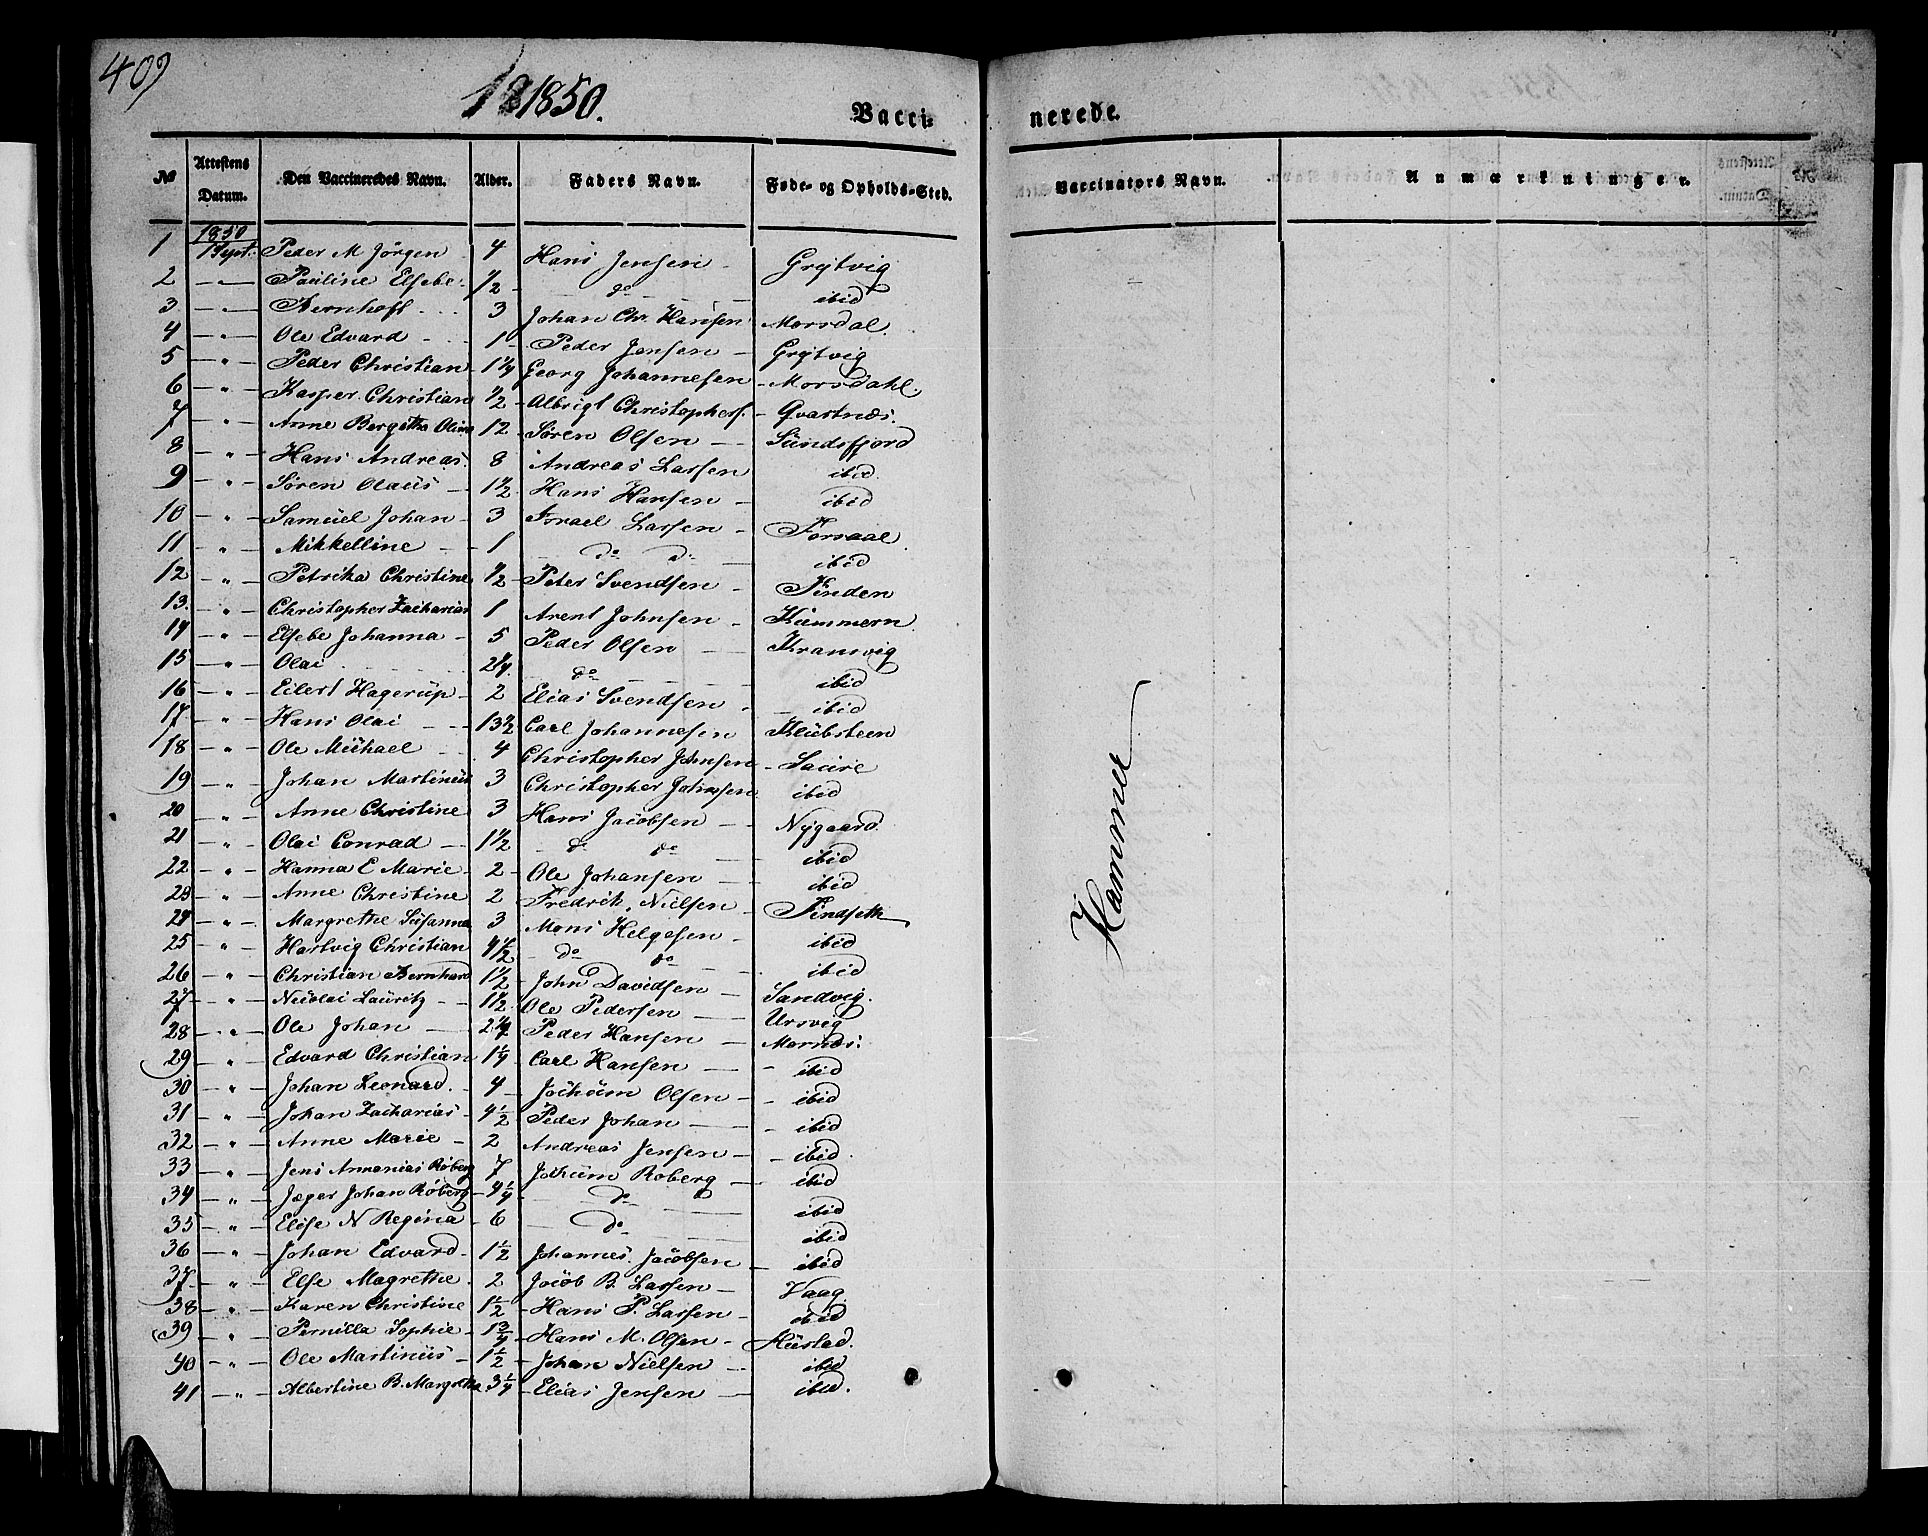 409
1850.
Vacci- nerede.
No Attestens Datum. Den Vaccineredes Navn. Alder. Faders Navn. Føde- og Opholds-Sted. Vaccinators Navn. Anmærkninger.
1850
1 1 Sept: Peder M Jörgen 4 Hans Jensen Grÿtvig
2 — " — Pauline Elsebe 1/2 do ibid
3 — " — Bernhoft 3 Johan Chr. Hansen Morsdal.
4 — " — Ole Edvard 1 Peder Jensen Grÿtvig
5 — " — Peder Christian 1 1/4 Georg Johannesen Morsdahl.
6 — " — Kasper Christian 1/2 Albrigt Christophers. Qvartnæs.
7 — " — Anne Bergitha Olina 12 Søren Olsen Sundsfjord
8 — " — Hans Andreas. 8 Andreas Larsen ibid.
9 — " — Søren Olaüs 1 1/2 Hans Hansen ibid
10 — " — Samüel Johan 3 Israel Larsen Forsaal.
11 — " — Mikkelline 1 do do ibid
12 — " — Petrika Christine 1/2 Peter Svendsen Finden
13. — " — Christopher Zacharias 1 Arent Johnsen Kümmern
14 — " — Elsebe Johanna 5 Peder Olsen Kranvig
15 — " — Olai 2 1/4. do ibid
16 — " — Eilert Hagerüp 2 Elias Svendsen ibid
17 — " — Hans Olai 13 1/2 Carl Johannesen Klübsteen
18 — " — Ole Michael 4 Christopher Johnsen
19 — " — Johan Martinüs 3 Christopher Johnsen ibid
20 — " — Anne Christine 3 Hans Jacobsen Nÿgaard.
21 — " — Olai Conrad 1 1/2 do do ibid
22 — " — Hanna E Marie 2 Ole Johansen ibid
23 — " — Anne Christine 2 Fredrik Nielsen Findseth
24 — " — Margrethe Süsanna 3 Mons Helgesen ibid
25 — " — Hartvig Christian 4 1/2 do do ibid
26 — " — Christian Bernhard 1 1/2 John Davidsen Sandvig.
27 — " — Nicolai Lauritz 1 1/2 Ole Pedersen Ursvig
28 — " — Ole Johan Peder Hansen Mornæs.
29 — " — Edvard Christian 1 1/4 Carl Hansen ibid
30 — " — Johan Leonard. 4 Jochüm Olsen ibid
31 — " — Johan Zacharias 4 1/2 Peder Johan ibid
32 — " — Anne Marie 2 Andreas Jensen ibid.
33 — " — Jens Annanias Röberg 7 Jochüm Roberg ibid
34 — " — Jæger Johan Röberg 4 1/4 do ibid
35 — " — Elise N Regina 6 do ibid
36 — " — Johan Edvard 1 1/2 Johannes Jacobsen ibid
37 — " — Else Magrethe. 2 Jacob B. Larsen Vaag
38 — " — Karen Christine 1 1/2 Hans P. Larsen ibid
39 — " — Pernilla Sophie 1 3/4 Hans M. Olsen Hüstad.
40 — " — Ole Martinüs 1 1/2 Johan Nielsen ibid
41 — " — Albertine B. Margretha 3 1/4 Elias Jensen ibid.
Hammer